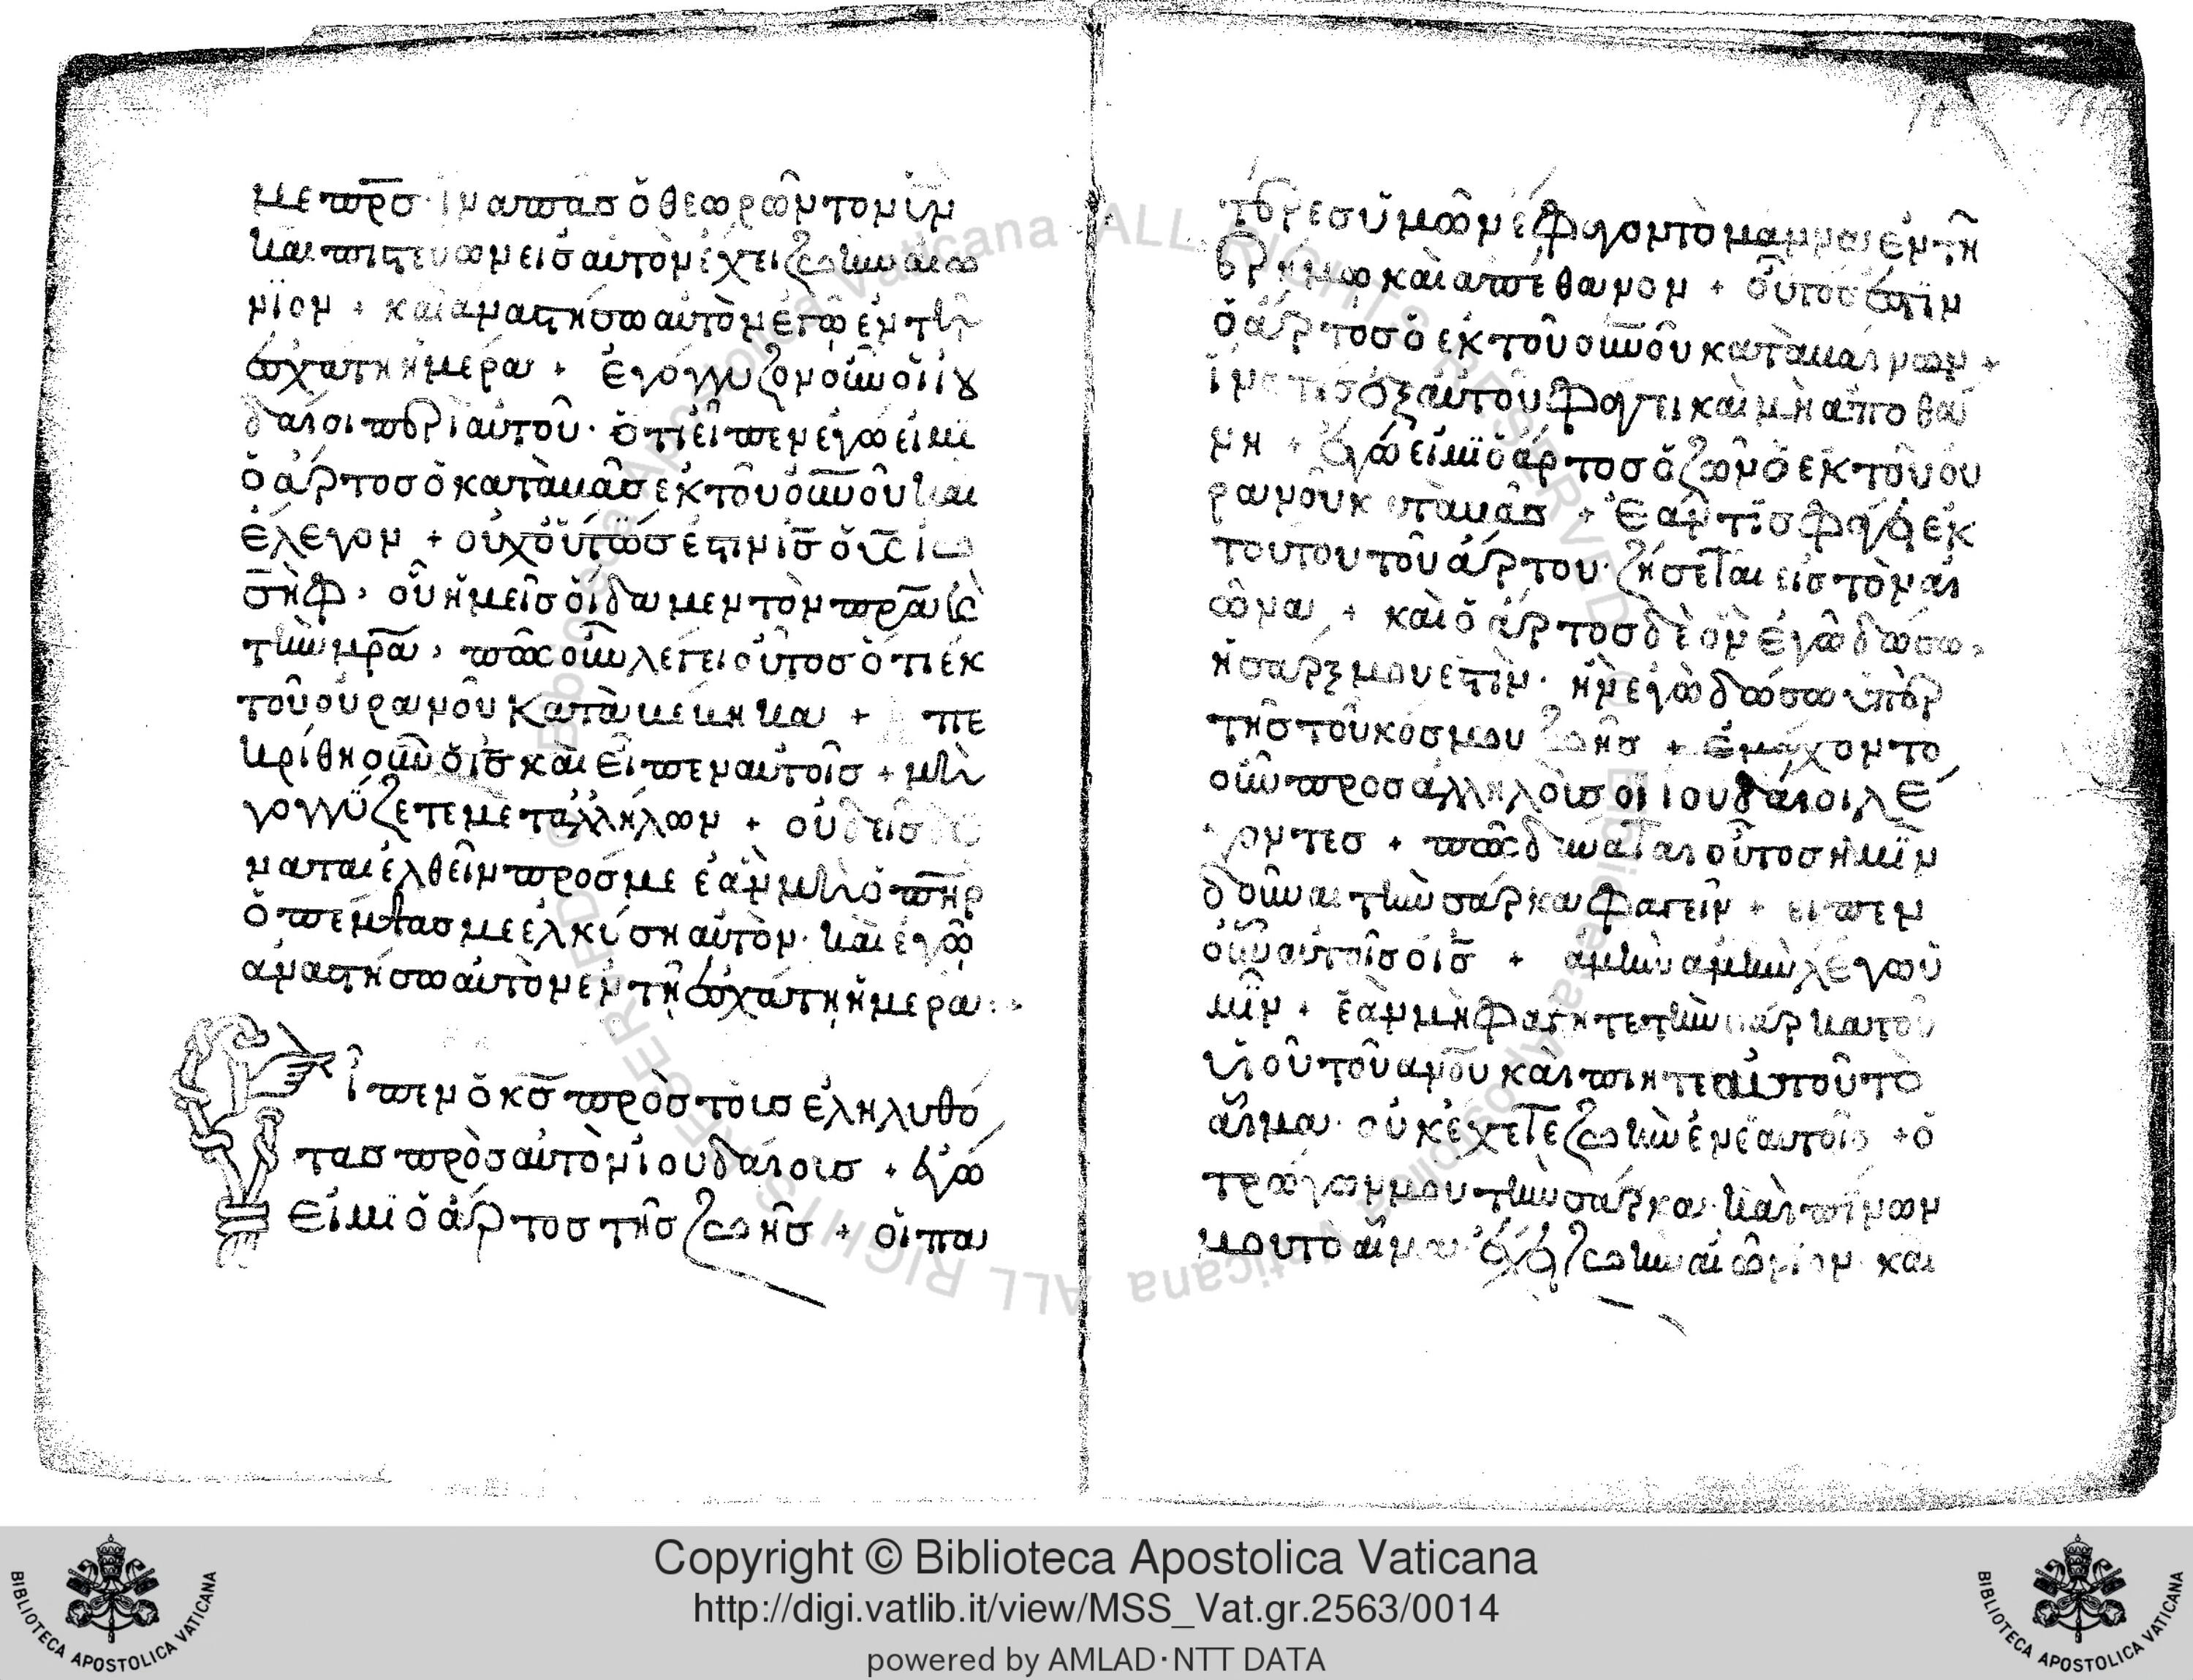 με πρσ· ἵνα πᾶς ὁ θεωρῶν τὸν υν
καὶ πιστεύων εἰς αὐτὸν ἔχει ζωὴν αἰώ
νιον + καὶ ἀναστήσω αὐτὸν ἐγὼ ἐν τῆ
ἐσχάτη ἡμέρα + ἐγόγγυζον οὖν οἱ ἰου
δαῖοι περὶ αὐτοῦ· ὅτι εἶπεν ἐγώ εἰμι
ὁ ἄρτος ὁ καταβὰς ἐκ τοῦ οὐνοῦ καὶ
ἔλεγον + οὐχ οὗτός ἐστιν ις ὁ υς ἰω
σὴφ, οὗ ἡμεῖς οἴδαμεν τὸν πρα καὶ
τὴν μρα, πῶς οὖν λέγει οὗτος ὅτι ἐκ
τοῦ οὐρανοῦ καταβέβηκα + ἀπε
κρίθη οὖν ὁ ις καὶ εἶπεν αὐτοῖς + μὴ
γογγύζετε μετ ἀλλήλων + οὐδεὶς δύ
ναται ἐλθεῖν πρός με ἐὰν μὴ ὁ πηρ
ὁ πέμψας με ἑλκύση αὐτὸν· καὶ ἐγὼ
ἀναστήσω αὐτὸν ἐν τῆ ἐσχάτη ἡμέρα:
εἶπεν ὁ κς πρὸς τοὺς ἐληλυθό
τας πρὸς αὐτὸν ἰουδαίους + ἐγώ
εἰμι ὁ ἄρτος τῆς ζωῆς + οἱ πα
τέρες ὑμῶν ἔφαγον τὸ μάννα ἐν τῆ
ἐρήμω καὶ ἀπέθανον + οὗτός ἐστιν
ὁ ἄρτος ὁ ἐκ τοῦ οὐνοῦ καταβαίνων +
ἵνα τις ἐξ αὐτοῦ φάγη καὶ μὴ ἀποθά
νη + ἐγώ εἰμι ὁ ἄρτος ὁ ζῶν ὁ ἐκ τοῦ οὐ
ρανοῦ καταβάς + ἐάν τις φάγη ἐκ
τούτου τοῦ ἄρτου· ζήσεται εἰς τὸν αἰ
ῶνα + καὶ ὁ ἄρτος δὲ ὃν ἐγὼ δώσω,
ἡ σάρξ μου ἐστίν· ἣν ἐγὼ δώσω ὑπὲρ
τῆς τοῦ κόσμου ζωῆς + ἐμάχοντο
οὖν πρὸς ἀλλήλους οἱ ἰουδαῖοι λέ
γοντες + πῶς δύναται οὗτος ἡμῖν
δοῦναι τὴν σάρκα φαγεῖν + εἶπεν
οὖν αὐτοῖς ὁ ις + ἀμὴν ἀμὴν λέγω ὑ
μῖν + ἐὰν μὴ φάγητε τὴν σάρκα τοῦ
υἱοῦ τοῦ ανου καὶ πίητε αὐτοῦ τὸ
αἷμα· οὐκ ἔχετε ζωὴν ἐν ἑαυτοῖς + ὁ
τρώγων μου τὴν σάρκα· καὶ πίνων
μου τὸ αἷμα· ἔχει ζωὴν αἰώνιον· καὶ
Copyright © Biblioteca Apostolica Vaticana
http://digi.vatlib.it/view/MSS_Vat.gr.2563/0014
powered by AMLAD·NTT DATA
BIBLIOTECA APOSTOLICA VATICANA
BIBLIOTECA APOSTOLICA VATICANA